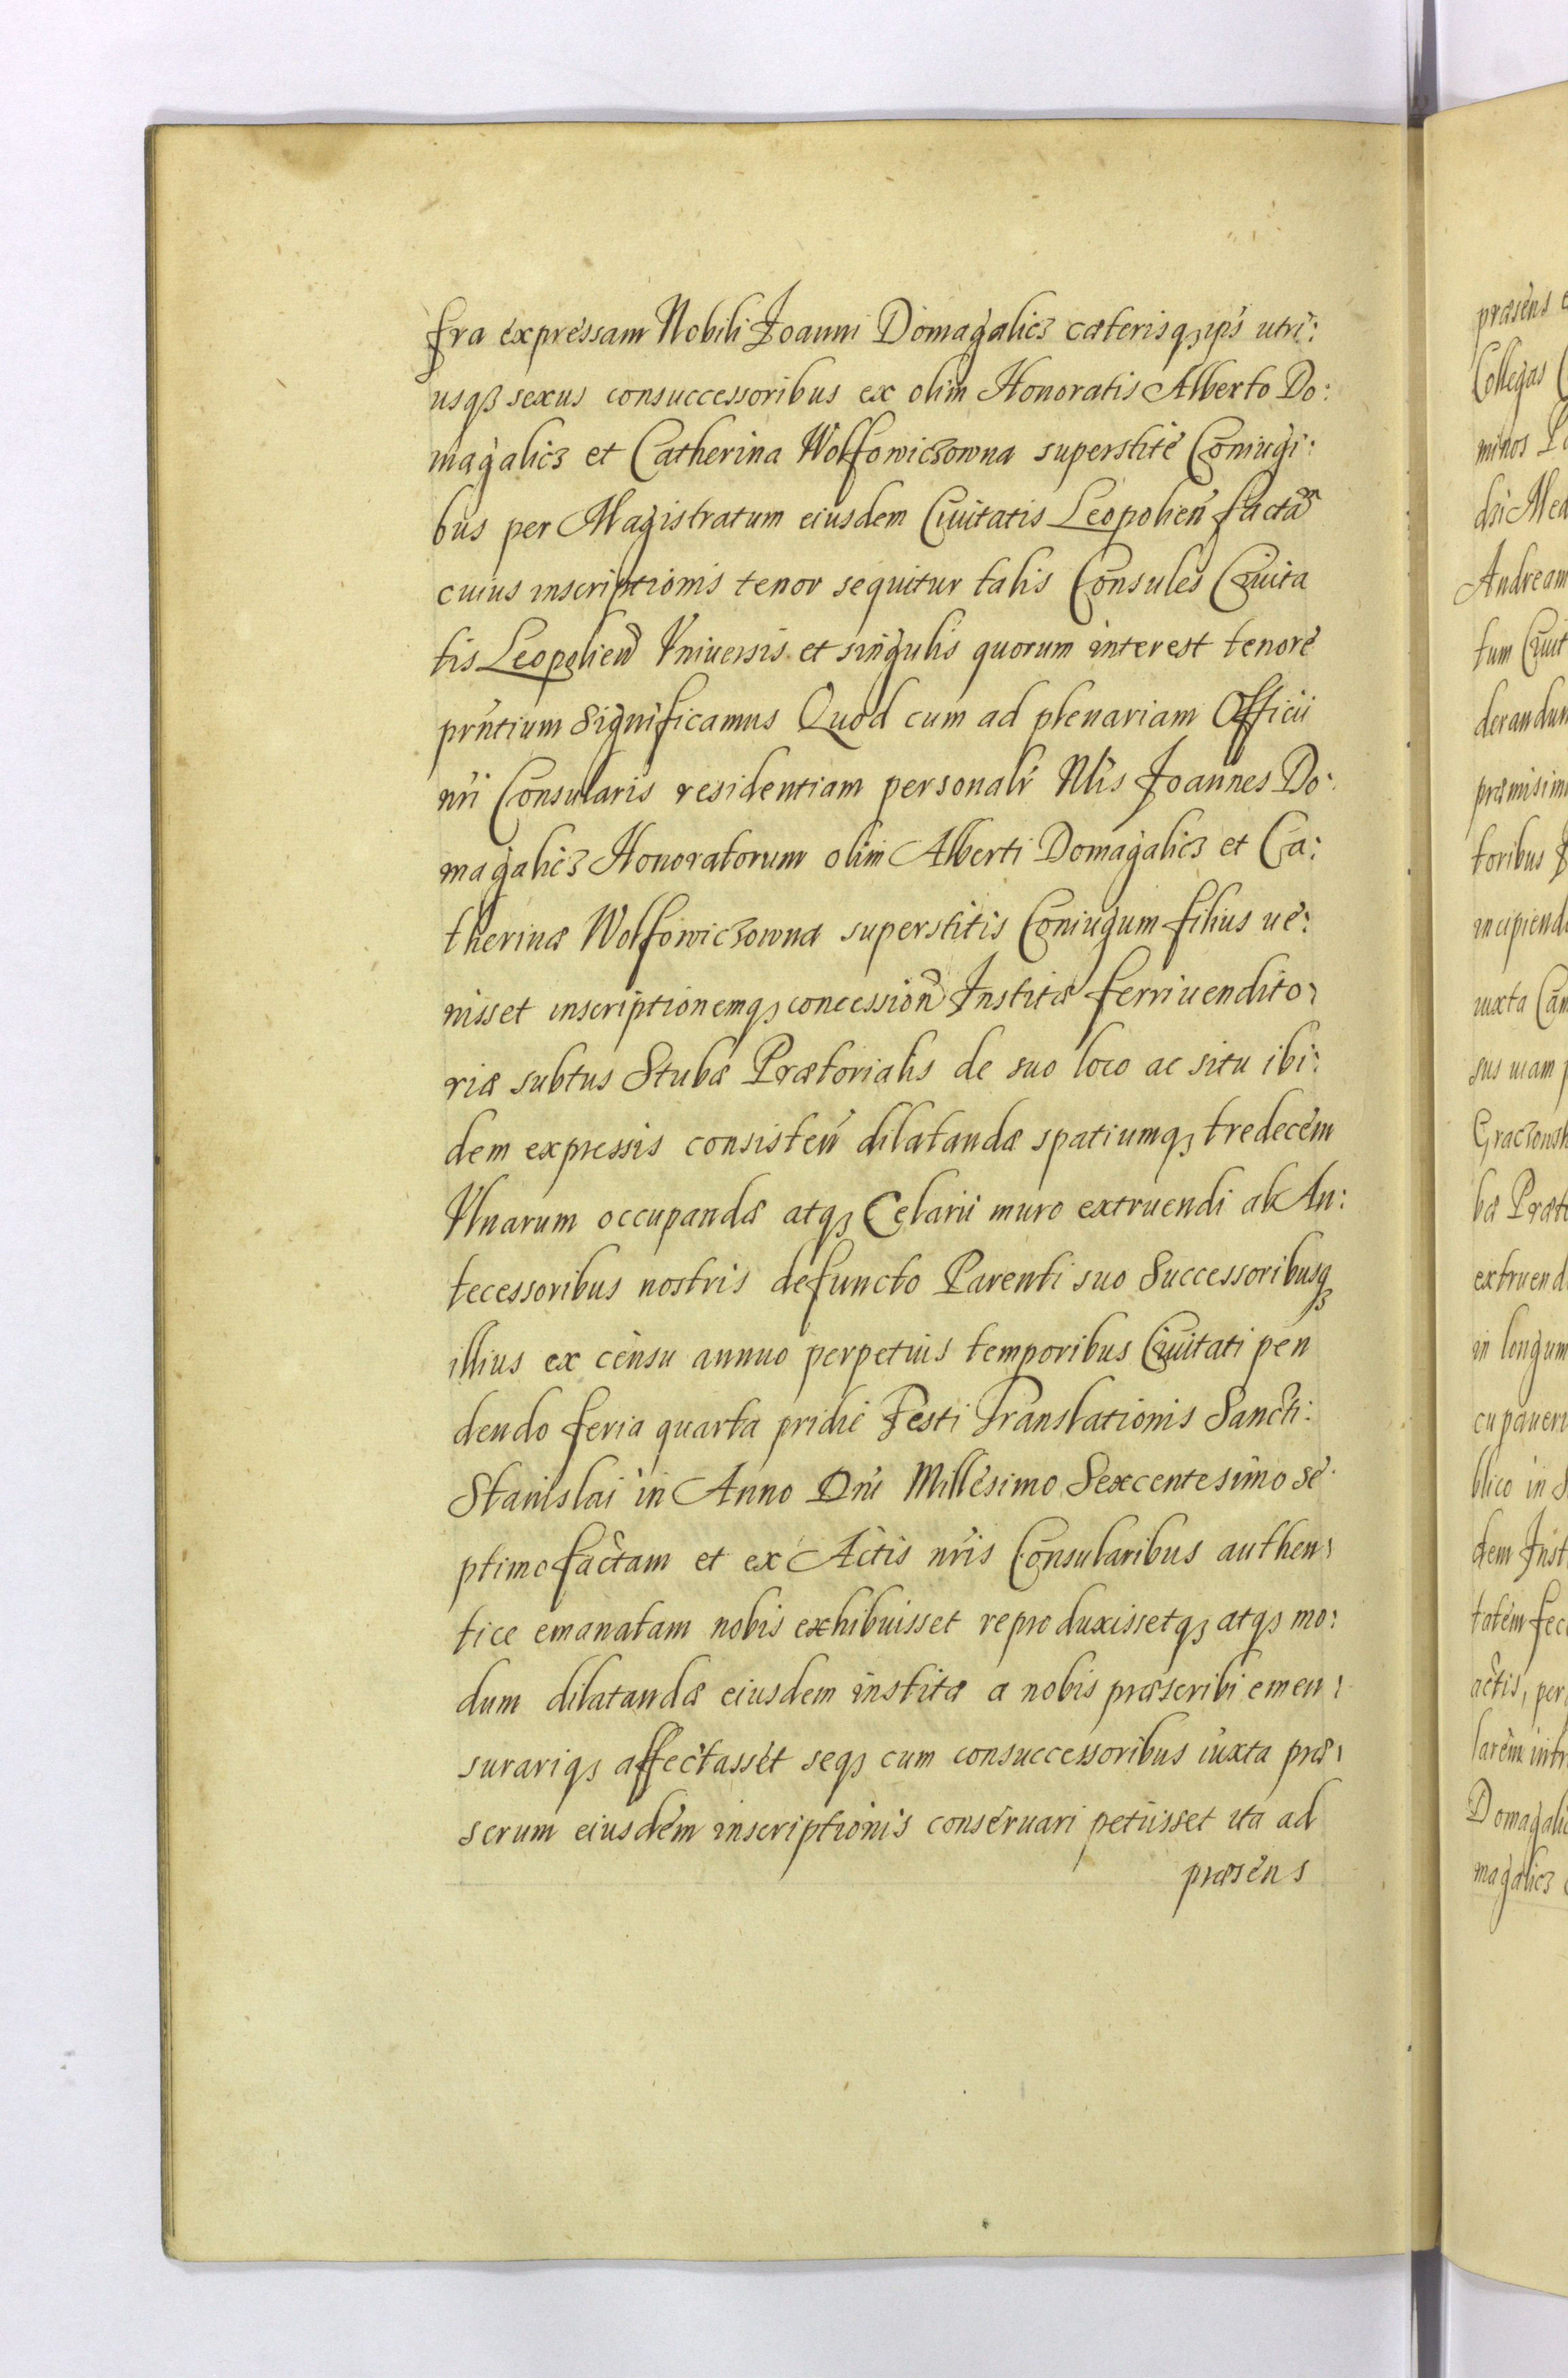 fra expressam Nobili Joanni Domagalicz cæterisqꝫ ipś utri:
usqꝫ sexus consuccessoribus ex olim Honoratis Alberto Do:
magalicz et Catherina Wolfowiczowna superstite Coniugi:
bus per Magistratum eiusdem Ciuitatis Leopolień factã
cuius inscriptionis tenor sequitur talis Consules Ciuita
tis Leopolień Vniuersis et singulis quorum interest tenore
prñtium Significamus Quod cum ad plenariam Officii
nři Consularis residentiam personalr̃ Nl̃is Joannes Do:
magalicz Honoratorum olim Alberti Domagalicz et Ca:
therinæ Wolfowiczowna superstitis Coniugum filius ue:
nisset inscriptionemqꝫ concessioñ Institæ ferri uendito:
riæ subtus Stuba Prætorialis de suo loco ac situ ibi:
dem expressis consisteń dilatandæ spatiumqꝫ tredecem
Vlnarum occupandæ atqꝫ Celarii muro extruendi ab An:
tecessoribus nostris defuncto Parenti suo Successoribusqꝫ
illius ex censu annuo perpetuis temporibus Ciuitati pen
dendo feria quarta pridie Festi Translationis Sancti:
Stanislai in Anno Dñi Millesimo Sexcentesimo se
ptimo factam et ex Actis nr̃is Consularibus authen:
tice emanatam nobis exhibuisset reproduxissetqꝫ atqꝫ mo:
dum dilatandæ eiusdem institæ a nobis præscribi emen:
surariqꝫ affectasset seqꝫ cum consuccessoribus iuxta præ:
scrum eiusdem inscriptionis conseruari petiisset ita ad
præsens
præsens
Collegas
minos
Andream
tum Ciuit
derandum
præmisim
toribus
incipiend
iuxta
sus uiam
bæ Præto
extruend
in longum
cupauer
blico in
dem Inst
tatem fec
actis, per
larem intr
Domagalic
magalicz